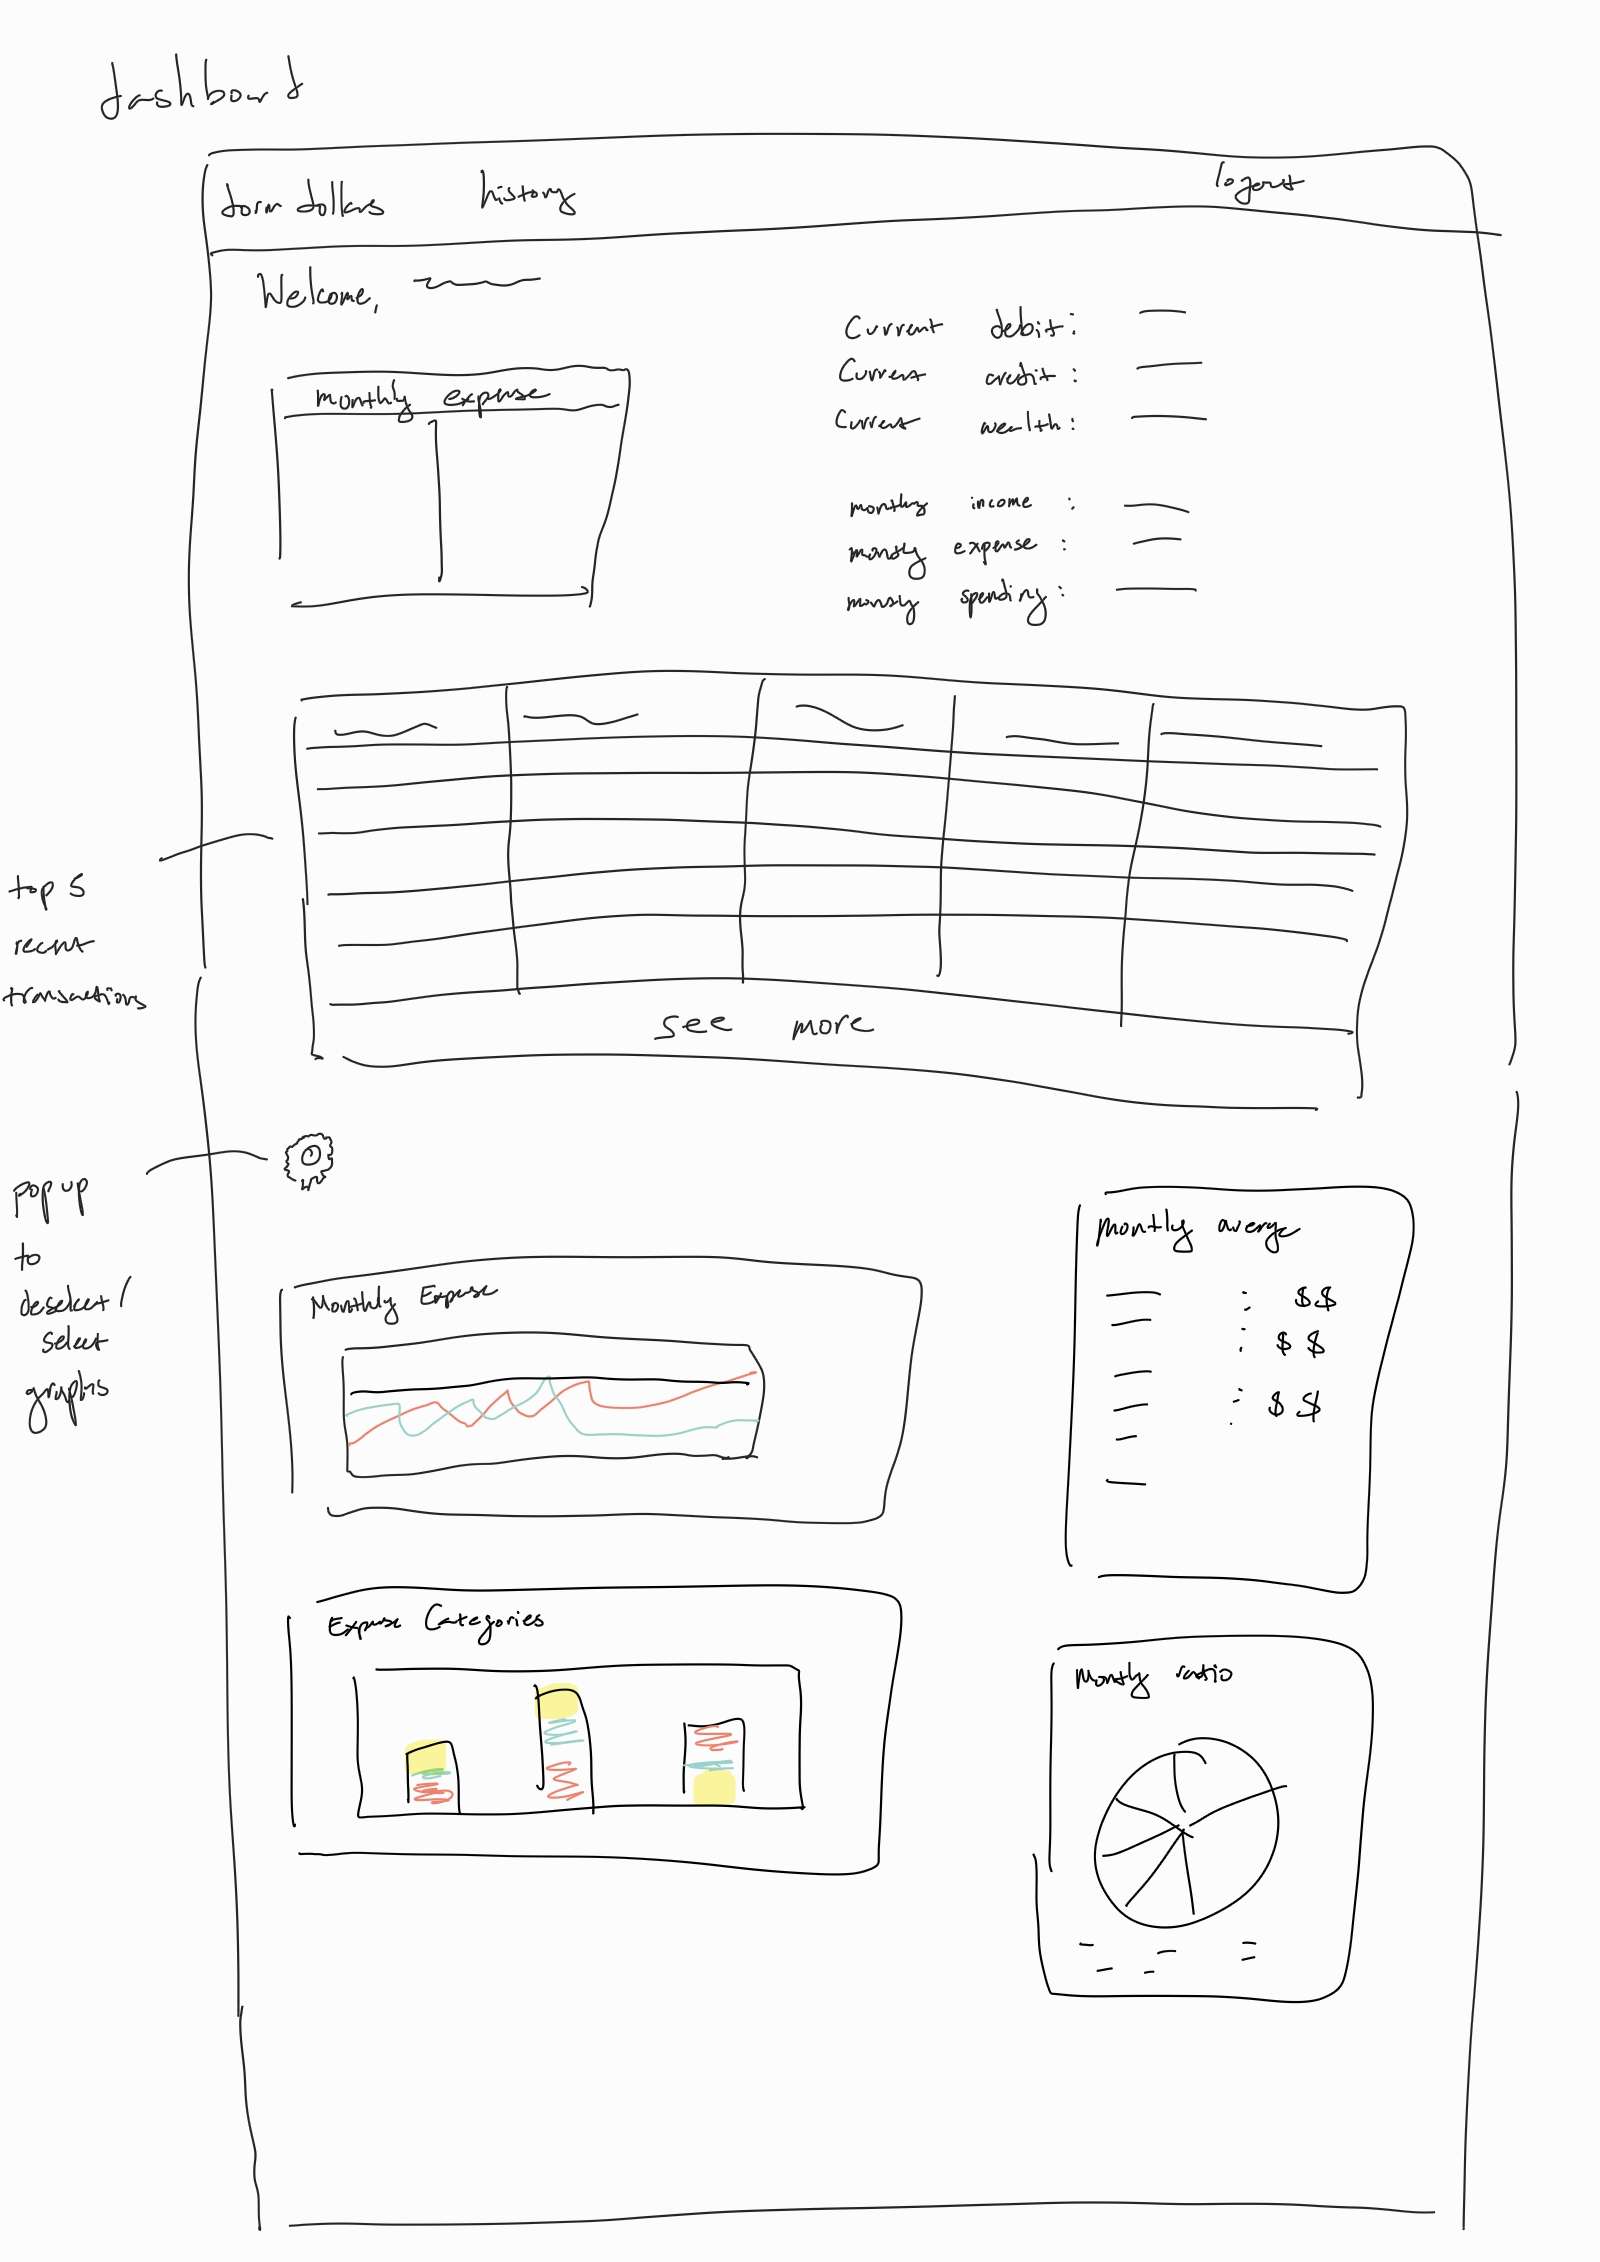 dashboard
dorm dollars history logout
Welcome,
Current debit:
Current credit:
Current wealth:
monthly expense
monthly income :
monthly expense :
monthly spending :
top 5
recent
transactions
see more
pop up
to
deselect /
select
graphs
Monthly average
$$
$ $
$ $
Monthly Expense
Expense Categories
Monthly ratio